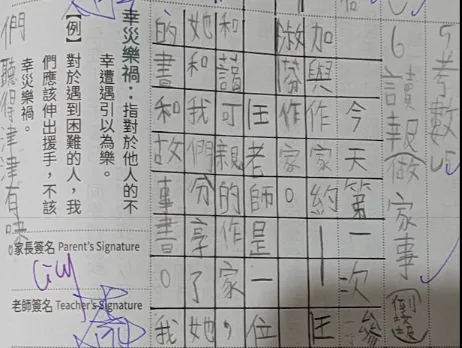 5考數
6讀報(做家事
今天第一次參
加與作家約
作家。
匡老師是一位
和藹可親的作家，
她和我們分享了她
的書和故事書。我
幸災樂禍：指對於他人的不
幸遭遇引以為樂。
【例】對於遇到困難的人，我
們應該伸出援手，不該
幸災樂禍。
們聽得津津有味。
家長簽名 Parent's Signature
老師簽名 Teacher's Signature